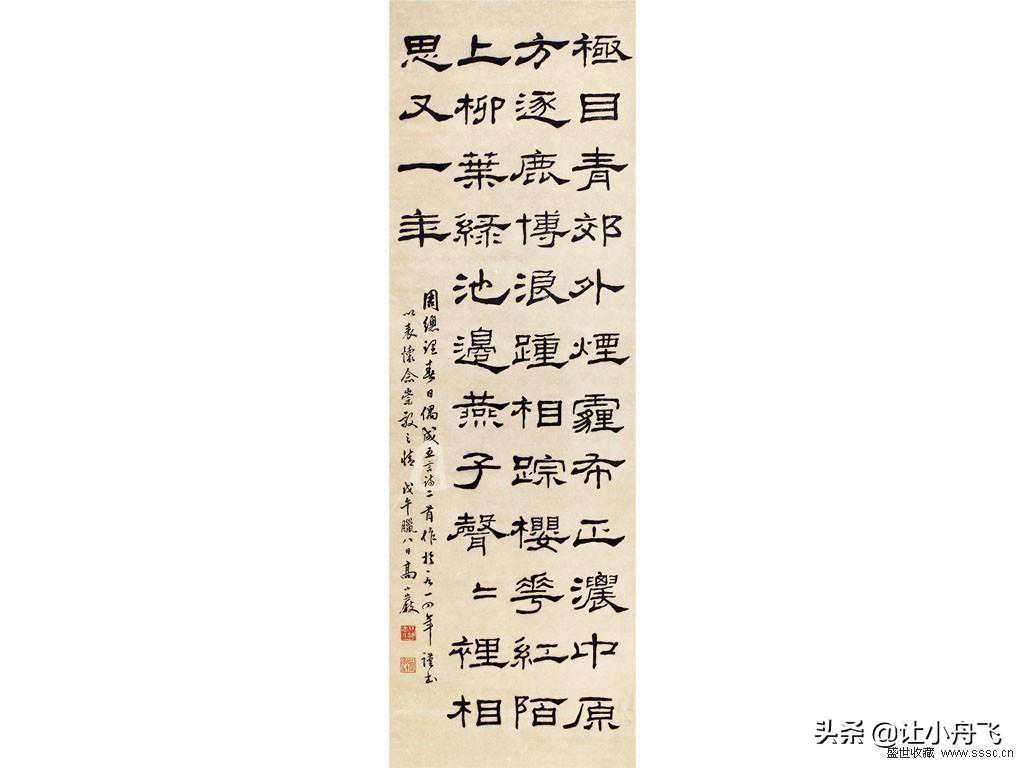 極目青郊外煙霾布正濃中原
方逐鹿博浪踵相踪櫻花紅陌
上柳葉綠池邊燕子聲〻裡相
思又一年
周總理春日偶成五言詩二首作於一九一四年謹書
以表懷念崇敬之情 戊午臘八日高小巖
头条 @让小舟飞
盛世收藏 www.sssc.cn